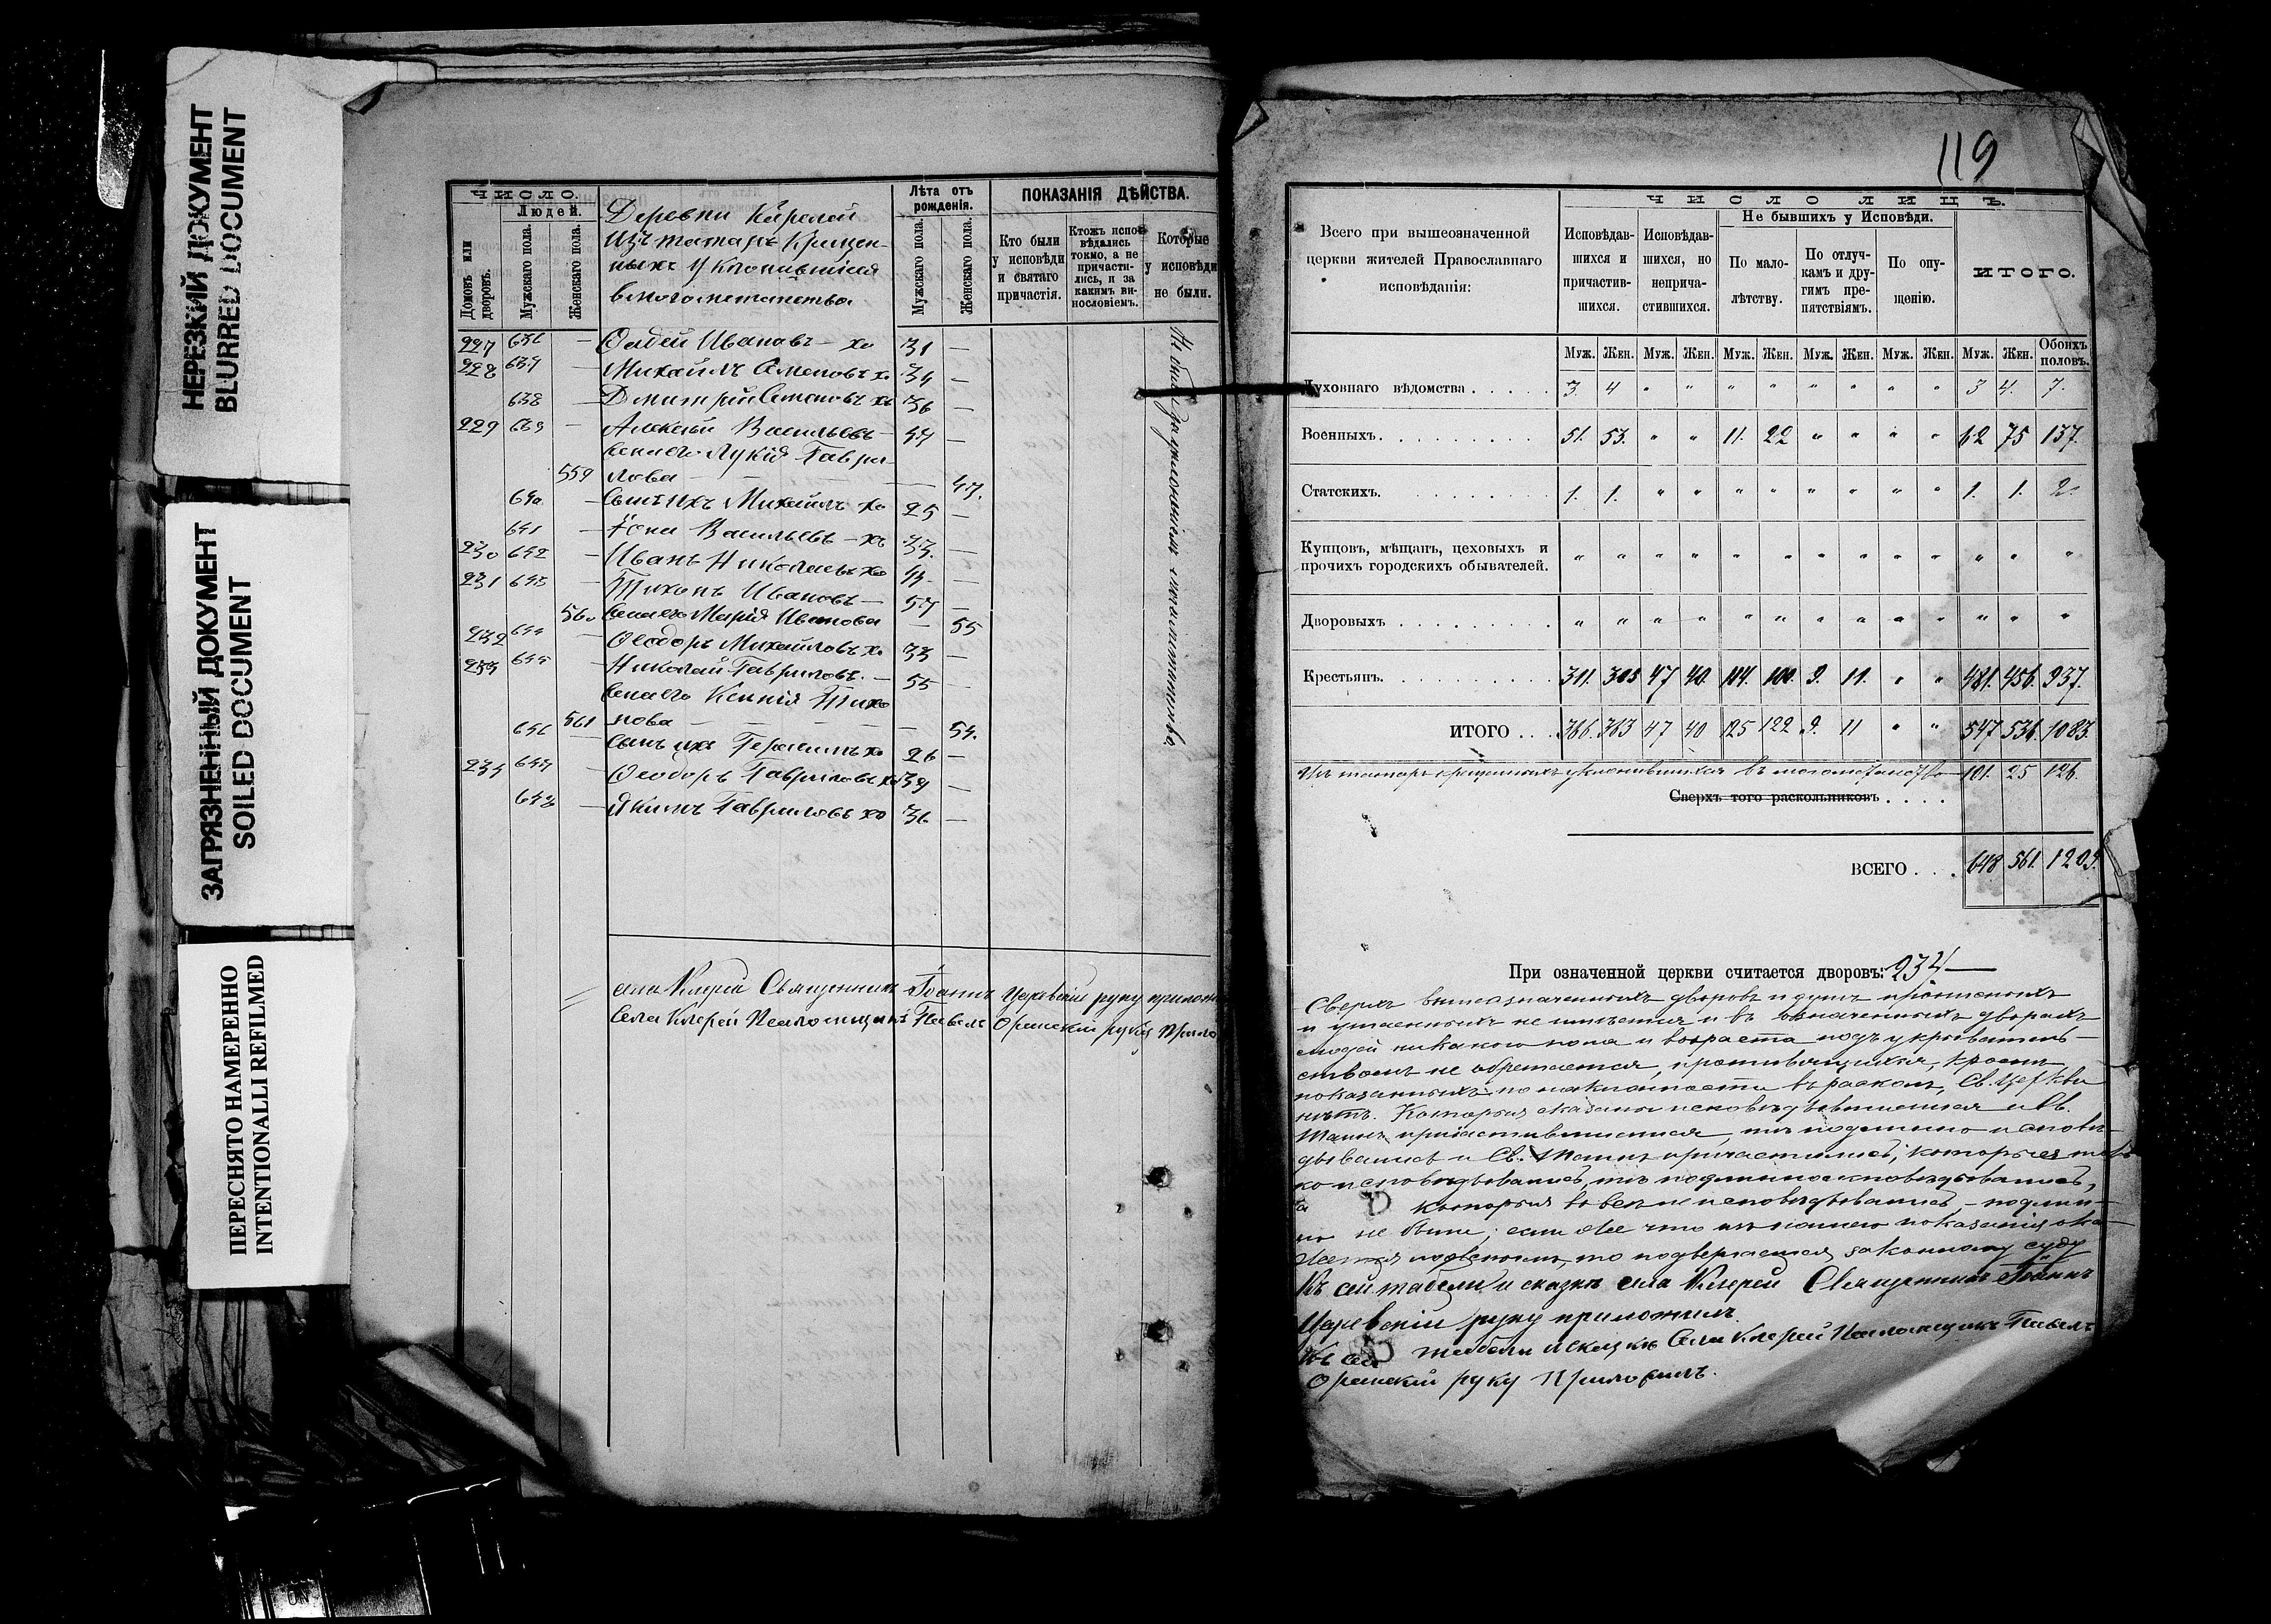 НЕРЕЗКИЙ ДОКУМЕНТ
BLURRED DOCUMENT
ЗАГРЯЗНЕННЫЙ ДОКУМЕНТ
SOILED DOCUMENT
ПЕРЕСНЯТО НАМЕРЕННО
INTENTIONALLI REFILMED
ЧИСЛО.
Людей.
Домовъ или дворовъ.
Мужскаго пола.
Женскаго пола.
Деревни
Изъ татаръ Крещен-
ныхъ Уклонившіяся
Лѣта отъ рожденія.
Мужскаго пола.
Женскаго пола.
ПОКАЗАНІЯ ДѢЙСТВА.
Кто были у исповѣди и святаго причастія.
Ктожъ исповѣдались токмо, а не причастились, и за какимъ винословіемъ.
Которые у исповѣди не были.
227 636 — Ивановъ — хо 31 —
228 637 — Михаилъ Семеновъ хо 34 —
638 — Димитрій хо 36 —
229 639 — Алексѣй Васильевъ — 47 —
Жена его Лукія Гаври-
559 лова — — 47.
640 — Сынъ ихъ Михаилъ хо 25 —
641 — Васильевъ — хо 33. —
230 642 — Иванъ Николаевъ хо —
231 643 — Тихонъ Ивановъ — 57 —
560 Жена его Марія Иванова — 55
232 644 — Ѳеодоръ Михайловъ хо 33 —
233 645 — Николай Гавриловъ. — 55 —
Жена его Ксенія Тихо
561 нова — — — — 54.
646 — Сынъ ихъ Герасимъ хо 26 —
234 647 — Ѳеодоръ Гавриловъ хо 39 —
648 — Якимъ Гавриловъ хо 36 —
села Священникъ Іоаннъ Царевскій руку прилож
Села Псаломщикъ Павелъ руку Прило
119
Всего при вышеозначенной церкви жителей Православнаго исповѣданія:
ЧИСЛО ЛИЦЪ.
Исповѣдавшихся и причастившихся.
Исповѣдавшихся, но непричастившихся.
Не бывшихъ у Исповѣди.
По малолѣтству.
По отлучкамъ и другимъ препятствіямъ.
По опущенію.
ИТОГО.
Муж. Жен. Муж. Жен. Муж. Жен. Муж. Жен. Муж. Жен. Муж. Жен. Обоихъ половъ.
Духовнаго вѣдомства . . . . . 3. 4 " " " " " " " " 3 4. 7.
Военныхъ. . . . . . . . . 51. 53. " " 11. 22 " " " " 62 75 137.
Статскихъ. . . . . . . . . 1. 1. " " " " " " " " 1. 1. 2.
Купцовъ, мѣщанъ, цеховыхъ и прочихъ городскихъ обывателей. " " " " " " " " " " " " "
Дворовыхъ . . . . . . . . . " " " " " " " " " " " " "
Крестьянъ. . . . . . . . . 311. 305 47 40. 114. 100. 9. 11. " " 481. 456. 937.
ИТОГО . . . 366. 363 47 40 125 122 9. 11 " " 547 536. 1083.
Изъ татаръ крещенныхъ уклонившихся въ 101. 25 126.
Сверхъ того раскольниковъ . . . .
ВСЕГО . . . 648 561. 1209.
При означенной церкви считается дворовъ: 234 —
Сверхъ вышеозначенныхъ дворовъ и душъ прописныхъ
и утаенныхъ не имѣется и въ означенныхъ дворахъ
людей никакого пола и возраста подъ укрыватель-
ствомъ не обретается, противящихся, кромѣ
показанныхъ по наклонности въ расколъ, Св. Церкви
нѣтъ. Которыя сказаны исповѣдывшимися и Св.
Таинъ причастившимися, тѣ подлинно исповѣ-
дывались и Св. Таинъ причастились, которыя толь
ко исповѣдывались, тѣ подлинно исповѣдывались,
а которыя вовсе не исповѣдывались — подлин-
но не были; если же что изъ нашего показанія ока-
жется ложнымъ, то подвергаемся законному суду
Къ сей табели и сказкѣ села Священникъ Іоаннъ
Царевскій руку приложилъ.
Къ сей табели и сказкѣ Села Псаломщикъ Павелъ
руку Приложилъ.